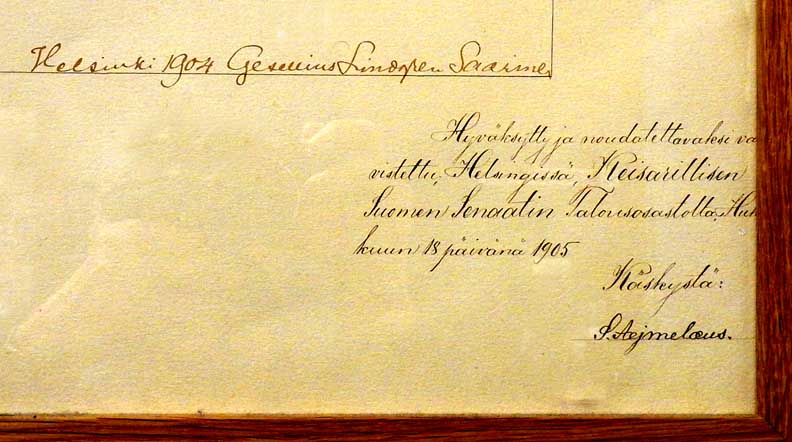 Helsinki 1904 Gesellius Lindgren Saarine
Hyväksytty ja noudatettavaksi va
vistettu, Helsingissä, Keisarillisen
Suomen Senaatin Talousosastolta, Huh
kuun 18 päivänä 1905
Käskystä:
S. Aejmelæus.